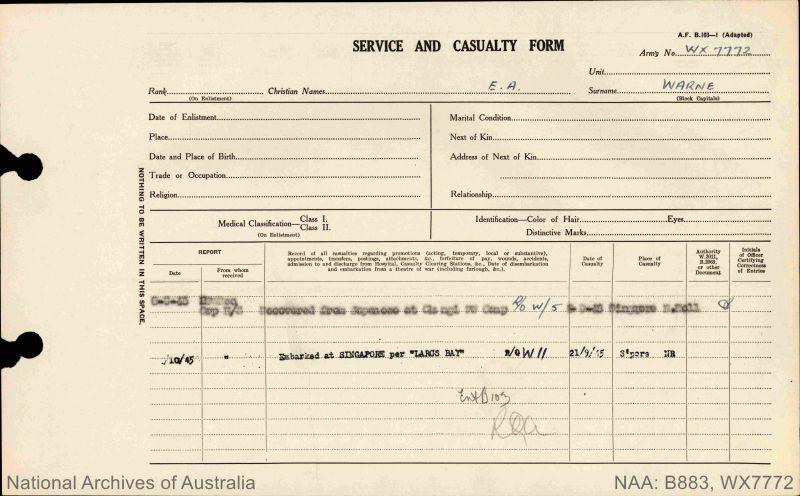 A.F. B.103—1 (Adapted)
SERVICE AND CASUALTY FORM
Army No. WX 7772
Unit
Rank Christian Names E.A. Surname WARNE
(On Enlistment) (Block Capitals)
Date of Enlistment
Place
Date and Place of Birth
Trade or Occupation
Religion
Marital Condition
Next of Kin
Address of Next of Kin
Relationship
Medical Classification— Class I.
Class II.
(On Enlistment)
Identification—Color of Hair Eyes
Distinctive Marks
NOTHING TO BE WRITTEN IN THIS SPACE.
REPORT
Date
From whom received
Record of all casualties regarding promotions (acting, temporary, local or substantive),
appointments, transfers, postings, attachments, &c., forfeiture of pay, wounds, accidents,
admission to and discharge from Hospital, Casualty Clearing Stations, &c. Date of disembarkation
and embarkation from a theatre of war (including furlough, &c.).
Date of Casualty
Place of Casualty
Authority W.3011, B.2069, or other Document
Initials of Officer Certifying Correctness of Entries
Recovered from Japanese at Changi Camp W/5
/10/45 " Embarked at SINGAPORE per "LARGS BAY" R/O W11 21/9/45 S'pore NR
Ent B103
National Archives of Australia
NAA: B883, WX7772